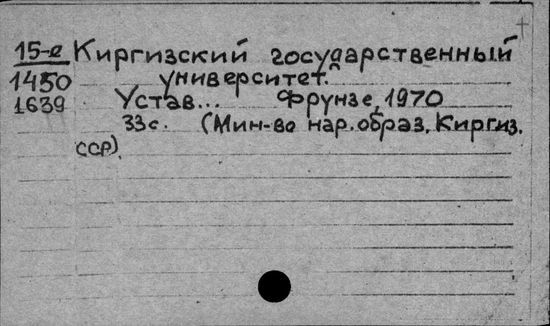 15-е Киргизский государственный
1450 университет.
1639 Устав... Фрунзе, 1970
33с. (Мин-во нар. образ. Киргиз.
ССР).